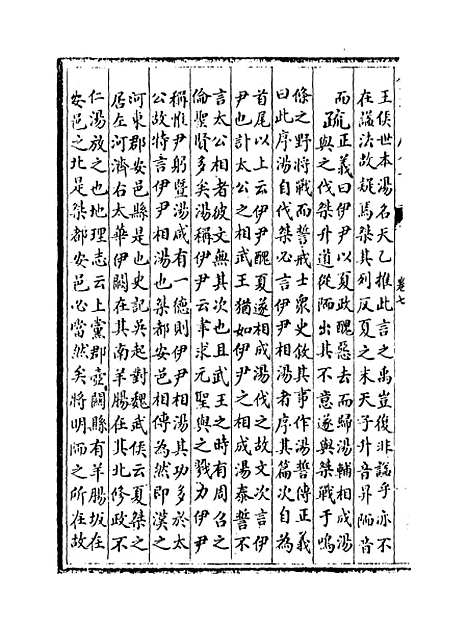 王侯世本湯名天乙推此言之禹豈復非諡乎亦不
在諡法故疑焉桀其列反夏之末天子升音昇陑音
而疏正義曰伊尹以夏政醜惡去而歸湯輔相成湯
與之伐桀升道從陑出其不意遂與桀戰于鳴
條之野將戰而誓戒士衆史敘其事作湯誓傳正義
曰此序湯自伐桀必言伊尹相湯者序其篇次自為
首尾以上云伊尹醜夏遂相成湯伐之故文次言伊
尹也計太公之相武王猶如伊尹之相成湯泰誓不
言太公相者彼文無其次也且武王之時有周召之
倫聖賢多矣湯稱伊尹云聿求元聖與之戮力伊尹
稱惟尹躬暨湯咸有一德則伊尹相湯其功多於太
公故特言伊尹相湯也桀都安邑相傳為然即漢之
河東郡安邑縣是也史記吳起對魏武侯云夏桀之
居左河濟右太華伊闕在其南羊腸在其北修政不
仁湯放之也地理志云上黨郡壺關縣有羊腸坂在
安邑之北是桀都安邑必當然矣將明師之所在故
卷七